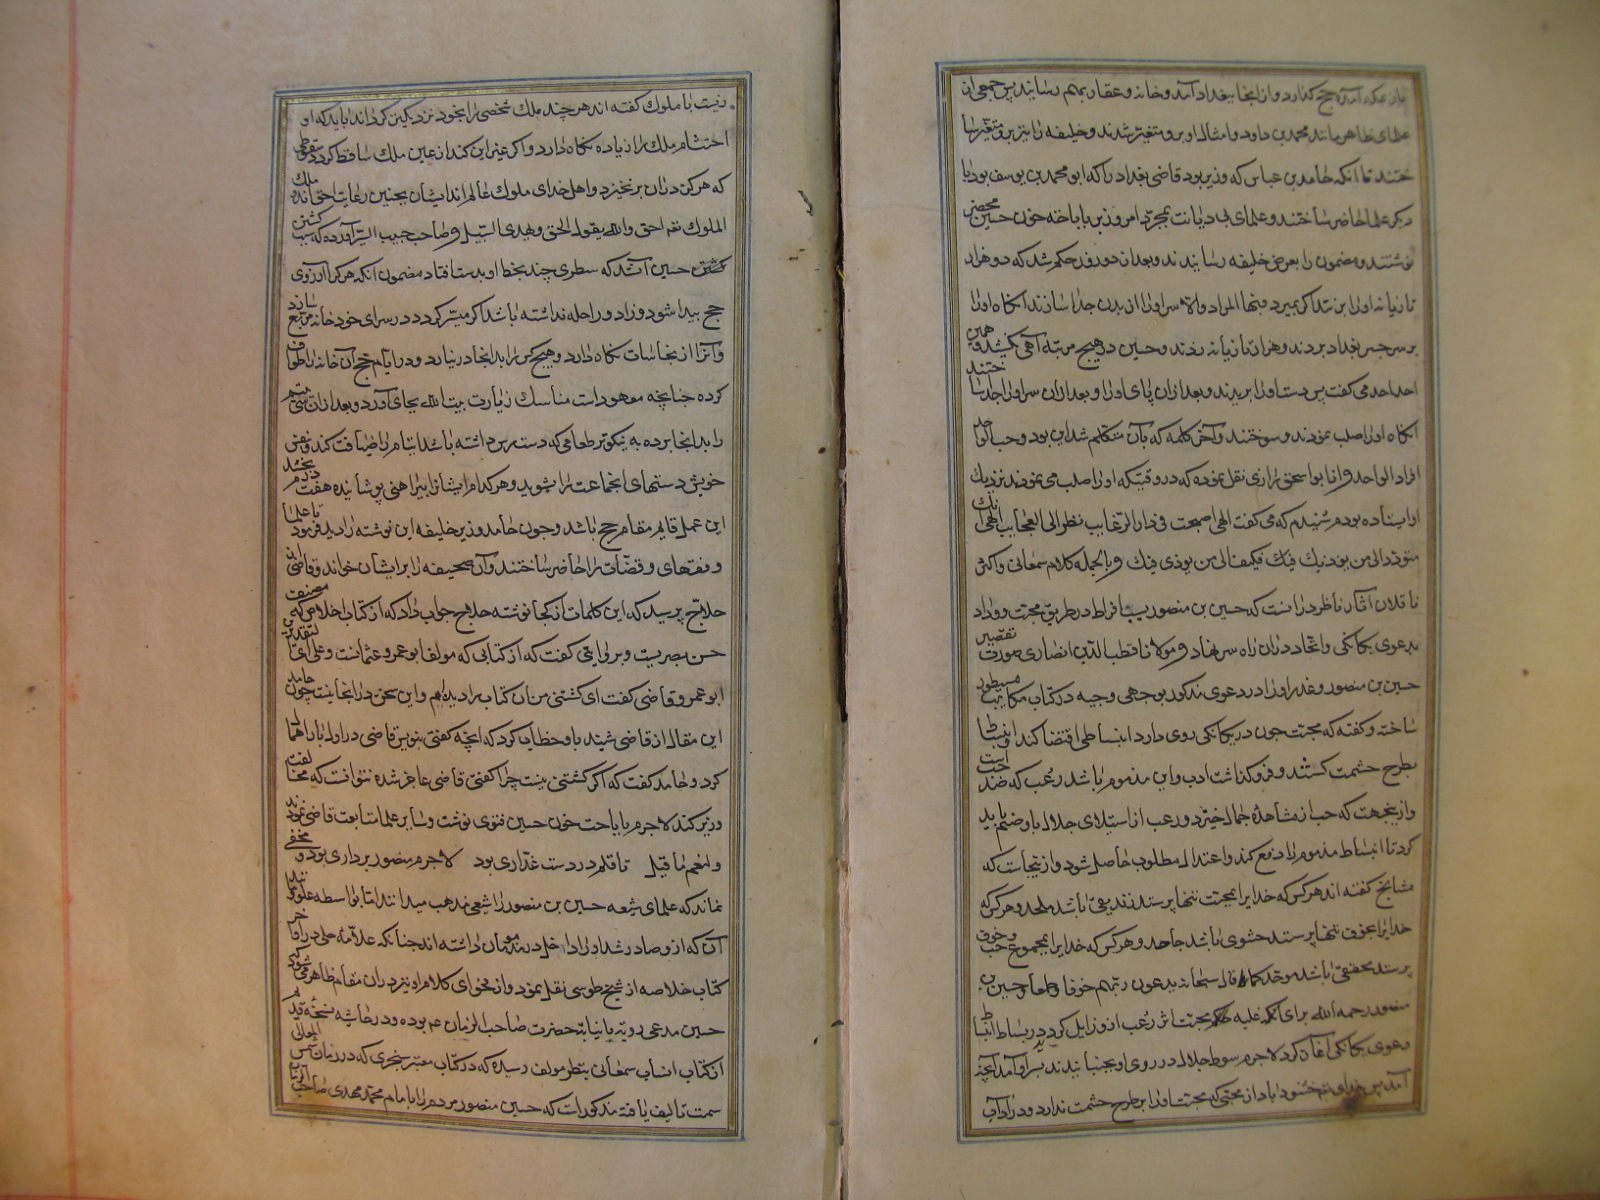 باز بمکه آمده حج کذارد و از انجا ببغداد آمد و خانه و عقار بهم رسانید پس جمعی از
علمای ظاهر مانند محمد بن داود و امثال او برو متغیر شدند و خلیفه را نیز برو متغیر سا
ختند تا آنکه حامد بن عباس که وزیر بود قاضی بغداد را که ابو محمد بن یوسف بود با
دیکر علما حاضر ساختند و علمای بی دیانت بمجرد امر وزیر باباحه خون حسین محضر
نوشتند و مضمون را بعرض خلیفه رسانیدند و بعد از دو روز حکم شد که دو هزار
تازیانه او را بزنند اکر بمیرد فبها المراد والا سر او را از بدن جدا سازند انکاه او را
بر سر جسر بغداد بردند و هزار تازیانه زدند و حسین در هیچ مرتبه آهی نکشید و همین
احد احد می کفت پس دست او را بریدند و بعد ازان پای او را و بعد ازان سر او را جدا ساختند
انکاه او را صلب نمودند و سوختند و آخر کلمه که بآن متکلم شد این بود حب الواحد
افراد الواحد و از ابو اسحق رازی نقل نموده که در وقتیکه او را صلب می نمودند نزدیک
او ایستاده بودم شنیدم که می کفت الهی اصبحت فی دار الرغایب نظر الی العجایب الهی انک
تتودد الی من یوذیک فیک فکیف الی من یوذی فیک و بالجمله کلام سمعانی و اکثر
ناقلان آثار ناظر در آنست که حسین بن منصور بسبب افراط در طریق محبت و وداد
بدعوی یکانکی و اتحاد دران راه سر نهاد و مولانا قطب الدین انصاری صورت تقصیر
حسین بن منصور و عذر او را در دعوی مذکور بوجهی وجیه در کتاب مکاتیب مسطور
ساخته و کفته که محبت چون در یکانکی روی دارد انبساطی اقتضا کند و انبساط
بطرح حشمت کستند و فروکذاشت ادب و این مذموم باشد رعب که ضد حب است
و ازینجهت که حب از مشاهدۀ جمال خیزد و رعب از استیلای جلال باو ضم باید
کرد تا انبساط مذموم را دفع کند و اعتدال مطلوب حاصل شود و ازینجاست که
مشایخ کفته اند هر کس که خدایرا بمحبت تنها پرستد زندیقی باشد ملحد و هر کس که
خدایرا بخوف تنها پرستد حشوی باشد جاحد و هر کس که خدایرا بمجموع حب و خوف
پرستد محققی باشد موحد کما قال سبحانه یدعون ربهم خوفا و طمعا و حسین بن
منصور رحمه الله برای آنکه غلبه محبت اثر رعب از و زایل کرد در بساط انبساط
دعوی یکانکی آغاز کرد لاجرم سوط جلال در روی او بجنبانیدند بسر او آمد آنچه
آمد پس خدای خشنود باد از محبتی که محبت او را بر طرح حشمت ندارد و در آداب
زینت با ملوک کفته اند هر چند ملک شخصی را بخود نزدیکتر کرداند باید که او
احتشام ملک را زیاده نکاه دارد و اکر غیر این کند از عین ملک ساقط کردد سقوطی
که هرکز دران برنخیزد و اهل خدای ملوک عالم اند ایشان بچنین رعایت احق اند و ملک
الملوک نعم احق والله یقول الحق و یهدی السبیل و صاحب حبیب السیر آورده که سبب کشتن
کشتن حسین آن شد که سطری چند بخط او بدست افتاد مضمون آنکه هر کرا آرزوی
حج پیدا شود و زاد و راحله نداشته باشد اکر میسر کردد در سرای خود خانه مربع سازد
و آنرا از نجاسات نکاه دارد و هیچ کس را بدانجا در نیارد و در ایام حج آن خانه را طواف
کرده چنانچه معهود است مناسک زیارت بیت الله بجای آورد و بعد ازان سی یتیم
را بدانجا برده به نیکوتر طعامی که دست رس داشته باشد ایتام را ضیافت کند و بنفس
خویش دستهای انجماعت را بشوید و هر کدام ایشانرا پیراهنی پوشانیده هفت درم بخشد
این عمل قایم مقام حج باشد و چون حامد وزیر خلیفه این نوشته را دید فرمود تا علما
و مفتهای و قضات را حاضر ساختند و آن صحیفه را بر ایشان خواند و قاضی از
حلاج پرسید که این کلمات از کجا نوشته حلاج جواب داد که از کتاب اخلاص که مصنف
حسن بصریست و بروایتی کفت که از کتابی که مولف ابو عمرو عثمانست و علی ای التقدیر
ابو عمرو قاضی کفت ای کشتنی من آن کتاب را دیده ام و این سخن در انجا نیست چون حامد
این مقاله از قاضی شنید باو خطاب کرد که آنچه کفتی بنویس قاضی در اول بار اهمال
کرد و حامد کفت که اکر کشتنی نیست چرا کفتی قاضی عاجز شده نتوانست که مخالفت
وزیر کند لاجرم باباحت خون حسین فتوی نوشت و سایر علما متابعت قاضی نمودند
ولنعم ما قیل تا قلم در دست غدّاری بود لاجرم منصور بر داری بود و مخفی
نماند که علمای شیعه حسین بن منصور را شیعی مذهب میدانند اما بواسطه غلوی
آن که از و صادر شد او را داخل در مذمومان داشته اند چنانکه علامه حلی در اواخر
کتاب خلاصه از شیخ طوسی نقل نمود و از فحوای کلام او نیز دران مقام ظاهر میشود که
حسین مدعی رویة یا نیابة حضرت صاحب الزمان عم بوده و در حاشیه نسخه قدیم
از کتاب انساب سمعانی بنظر مولف رسیده که در کتاب معتبر سنجری که در زمان شمس المعالی
سمت تالیف یافته مذکورات که حسین منصور مردم را با امام محمد مهدی صاحب الزمان